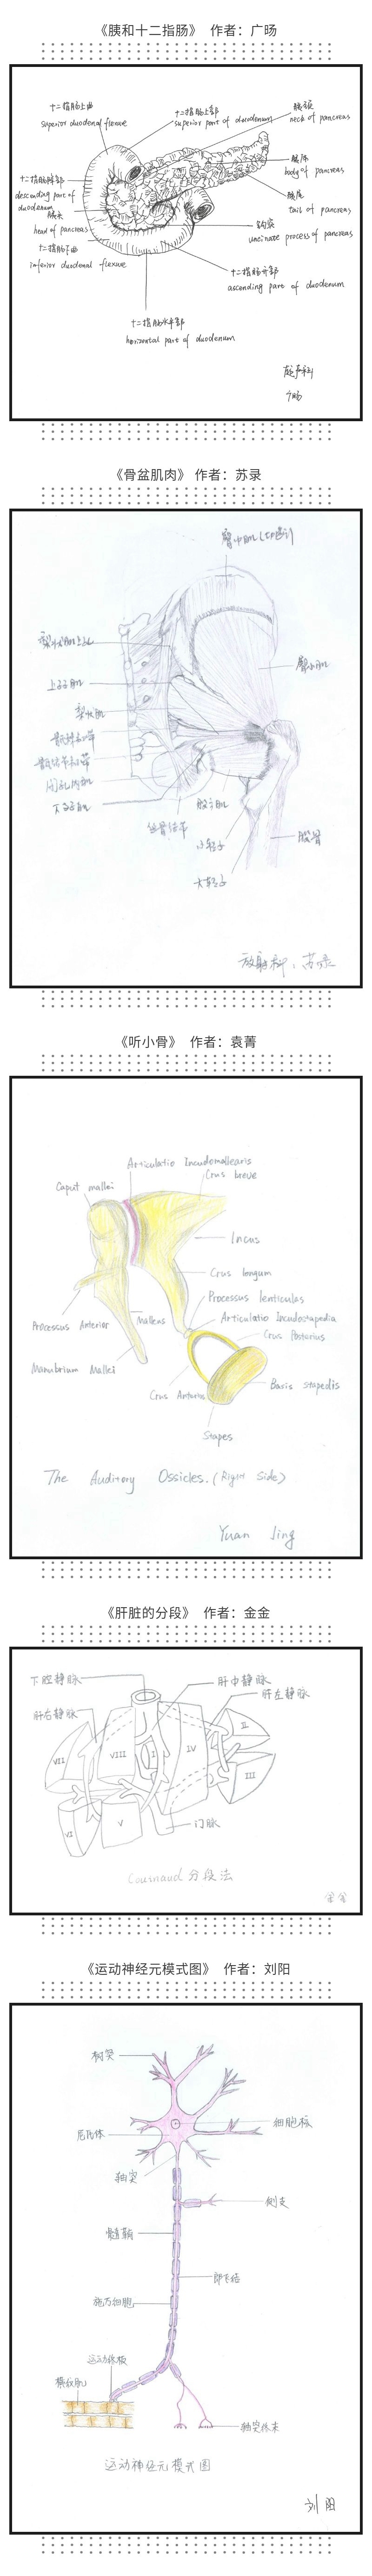 《胰和十二指肠》 作者：广旸
十二指肠上曲
superior duodenal flexure
十二指肠上部
superior part of duodenum
胰颈
neck of pancreas
胰体
body of pancreas
十二指肠降部
descending part of
duodenum
胰尾
tail of pancreas
胰头
head of pancreas
钩突
uncinate process of pancreas
十二指肠下曲
inferior duodenal flexure
十二指肠升部
ascending part of duodenum
十二指肠水平部
horizontal part of duodenum
《骨盆肌肉》 作者：苏录
梨状肌上孔
臀小肌
上孖肌
梨状肌
闭孔内肌
下孖肌
股方肌
坐骨结节
小转子
股骨
大转子
放射科：苏录
《听小骨》 作者：袁菁
Articulatio Incudomallearis
Caput mallei
Crus breve
Incus
Crus longum
Processus lenticulas
Processus Anterior
Malleus
Articulatio Incudostapedia
Crus Posterius
Manubrium Mallei
Crus Anterius
Basis stapedis
Stapes
The Auditory Ossicles. (Right Side)
Yuan Jing
《肝脏的分段》 作者：金金
下腔静脉
肝中静脉
肝左静脉
肝右静脉
VII
VIII
I
IV
II
III
VI
V
门脉
Couinaud 分段法
金金
《运动神经元模式图》 作者：刘阳
树突
细胞核
尼氏体
轴突
侧支
髓鞘
郎飞结
施万细胞
运动终板
横纹肌
轴突终末
运动神经元模式图
刘阳